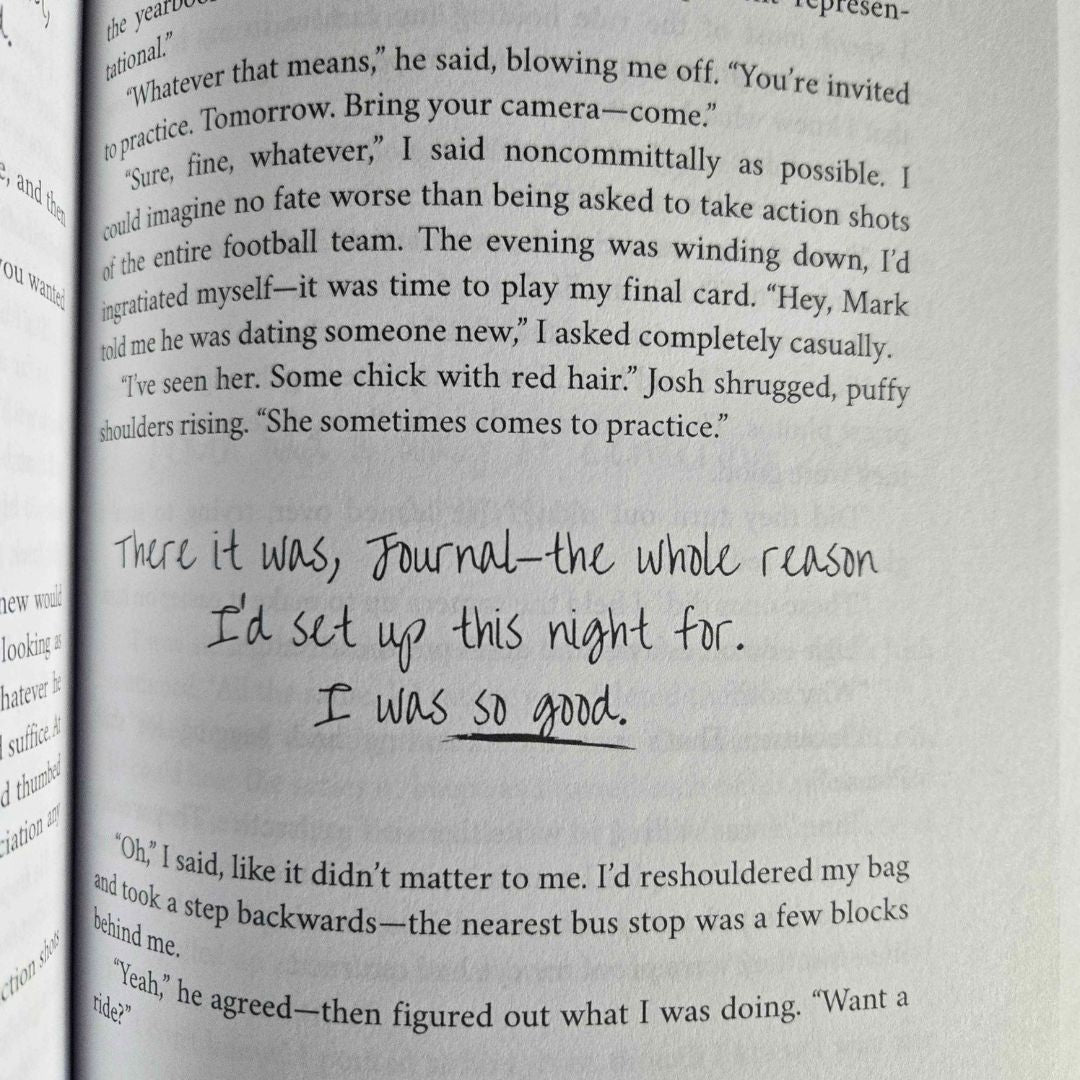 the
represen-
tational.”
“Whatever that means,” he said, blowing me off. “You’re invited
to practice. Tomorrow. Bring your camera—come.”
“Sure, fine, whatever,” I said noncommittally as possible. I
could imagine no fate worse than being asked to take action shots
of the entire football team. The evening was winding down, I’d
ingratiated myself—it was time to play my final card. “Hey, Mark
told me he was dating someone new,” I asked completely casually.
“I’ve seen her. Some chick with red hair.” Josh shrugged, puffy
shoulders rising. “She sometimes comes to practice.”
There it was, Journal—the whole reason
I’d set up this night for.
I was so good.
“Oh,” I said, like it didn’t matter to me. I’d reshouldered my bag
and took a step backwards—the nearest bus stop was a few blocks
behind me.
“Yeah,” he agreed—then figured out what I was doing. “Want a
ride?”
and then
you wanted
new would
looking as
hatever he
suffice. At
d thumbed
ciation any
ction shots